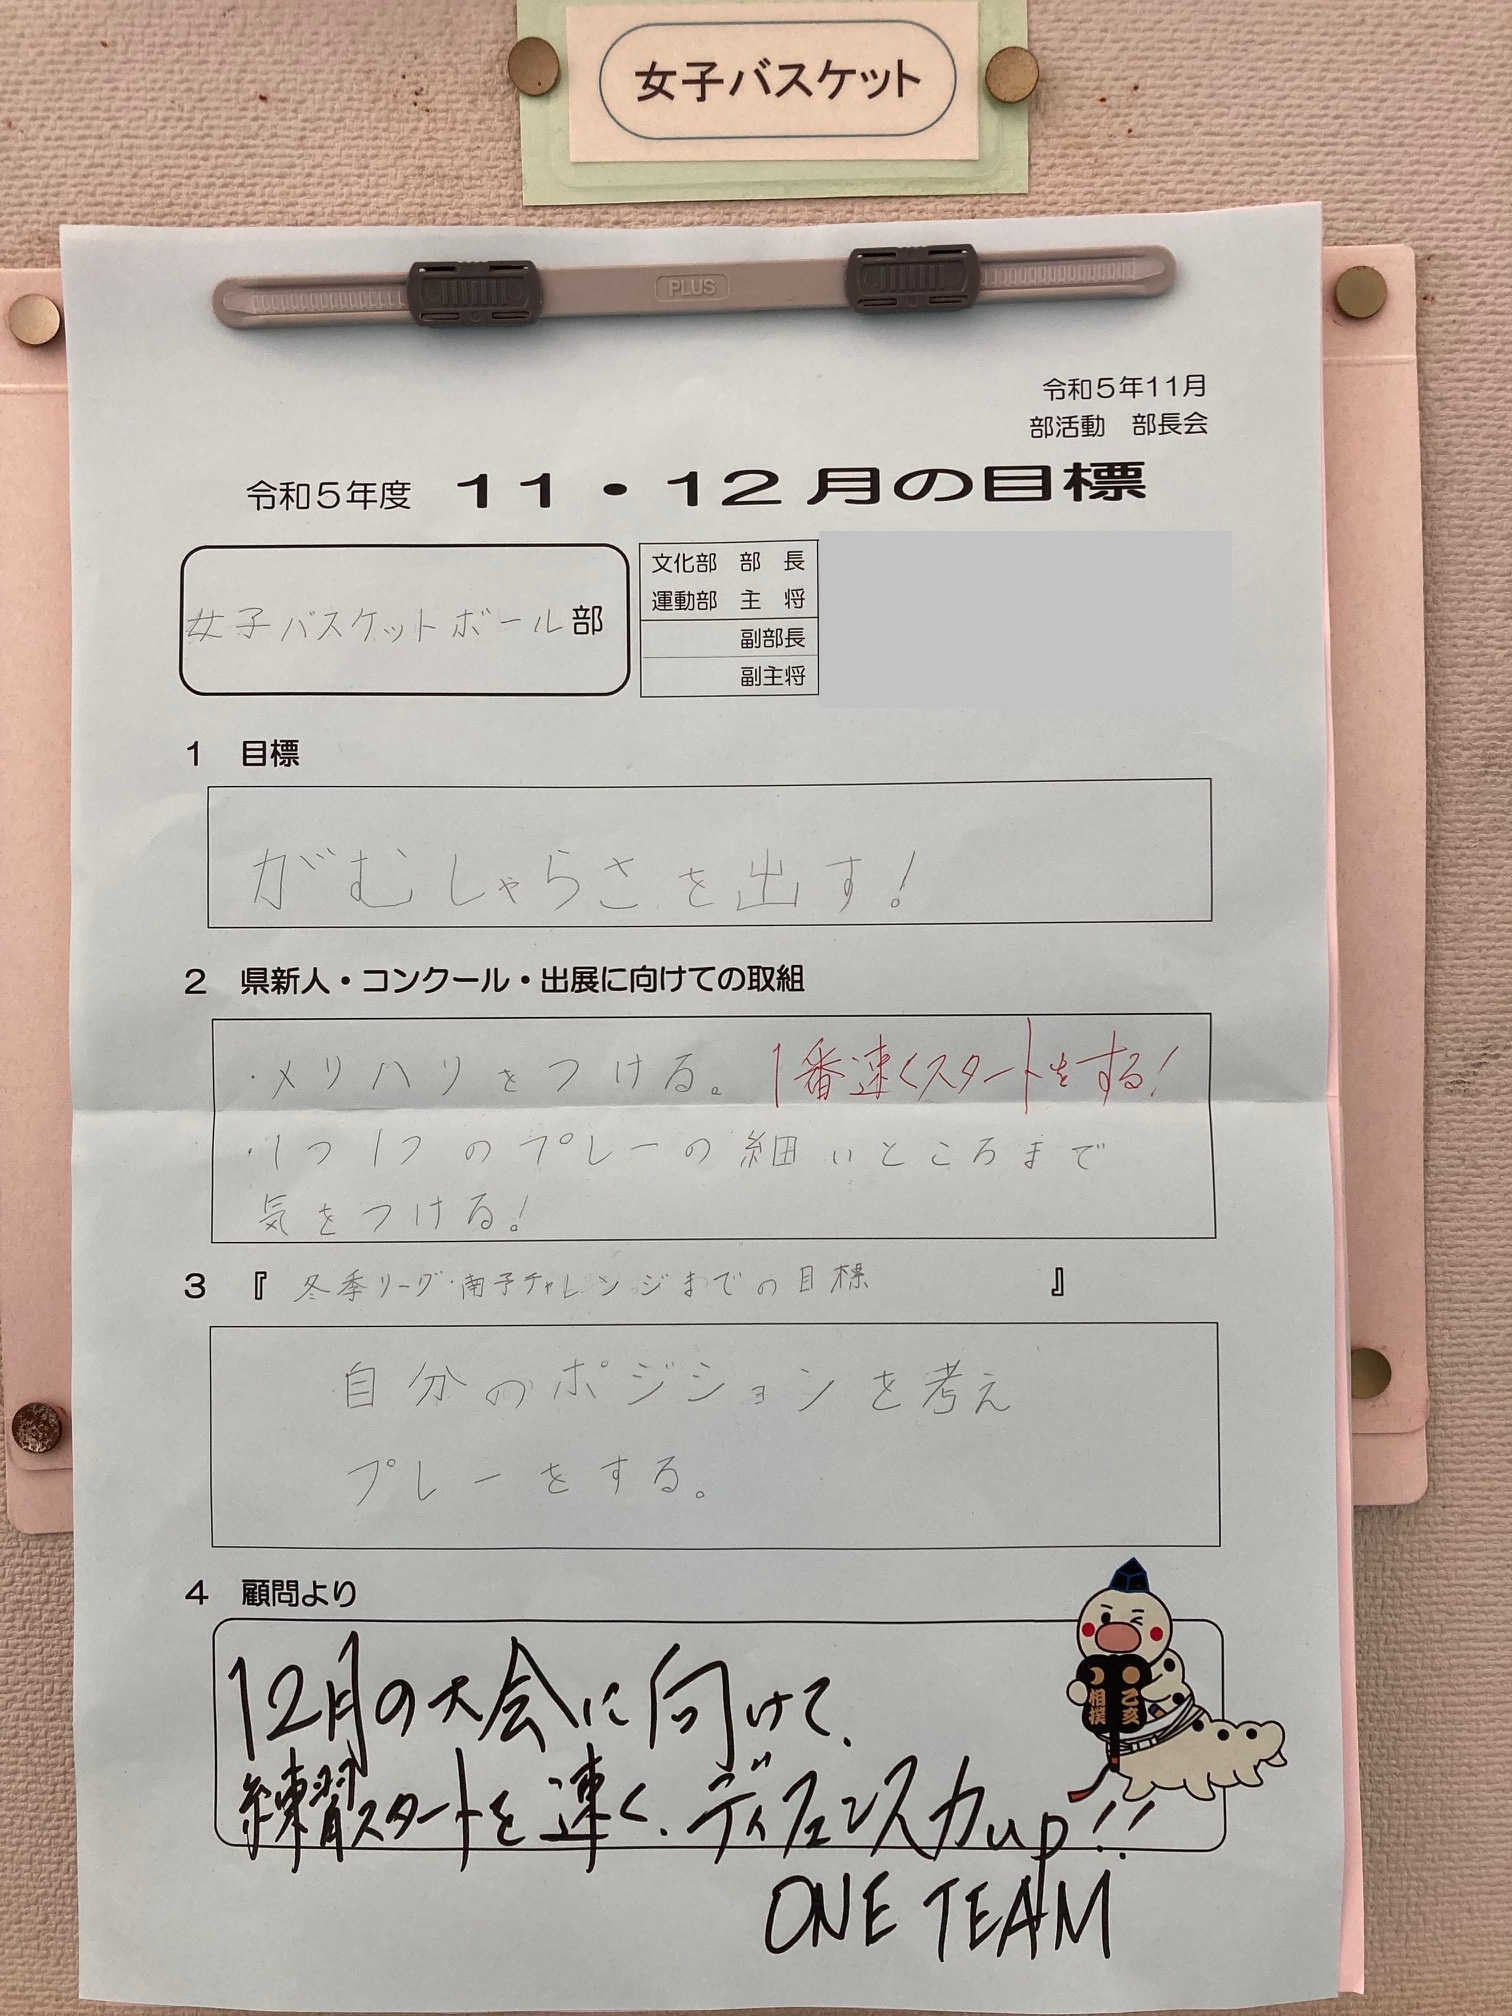 女子バスケット
PLUS
令和5年11月
部活動　部長会
令和5年度　11・12月の目標
女子バスケットボール部
文化部　部　長
運動部　主　将
副部長
副主将
1　目標
がむしゃらさを出す!
2　県新人・コンクール・出展に向けての取組
・メリハリをつける。1番速くスタートをする!
・1つ1つのプレーの細いところまで
気をつける!
3　『冬季リーグ・南予チャレンジまでの目標』
自分のポジションを考え
プレーをする。
4　顧問より
12月の大会に向けて、
練習スタートを速く、ディフェンス力up!!
ONE TEAM
乙亥
相撲